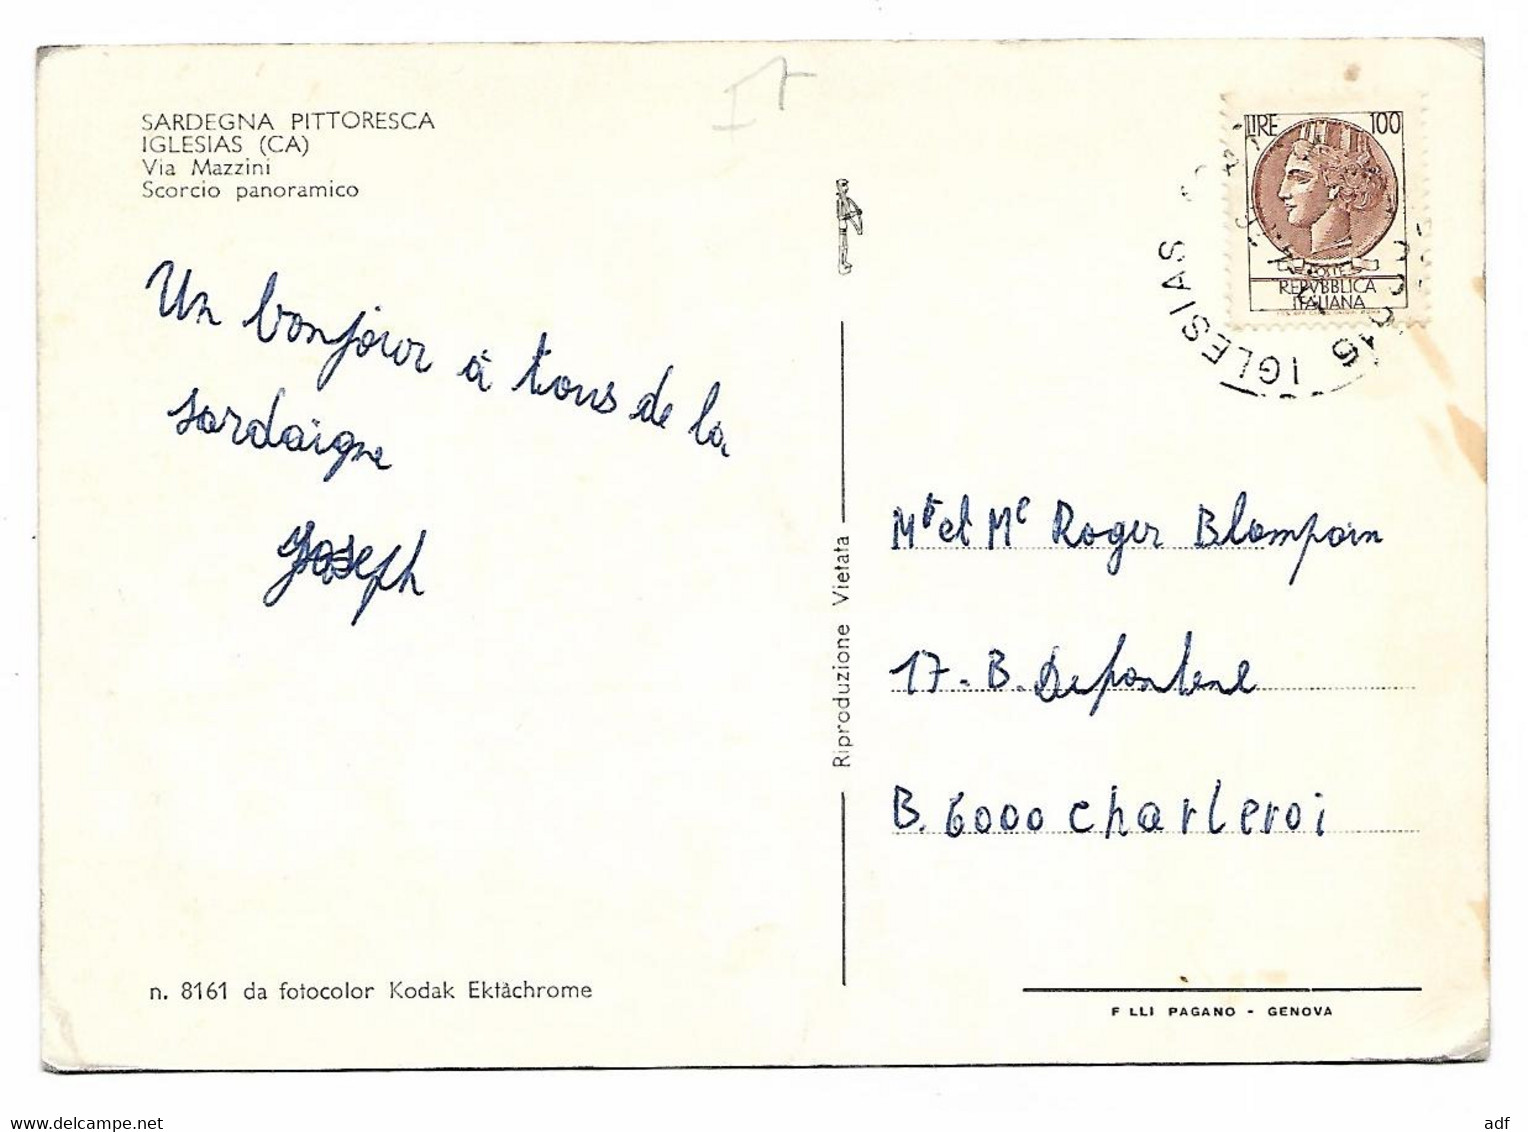 SARDEGNA PITTORESCA
IGLESIAS (CA)
Via Mazzini
Scorcio panoramico
Un bonjour à tous de la
sardaigne
Joseph
n. 8161 da fotocolor Kodak Ektàchrome
Riproduzione Vietata
LIRE 100
POSTE
REPVBBLICA
ITALIANA
IGLESIAS
Mr et Me Roger Blampain
17-B. Depontene
B. 6000 Charleroi
F LLI PAGANO - GENOVA
www.delcampe.net
adf